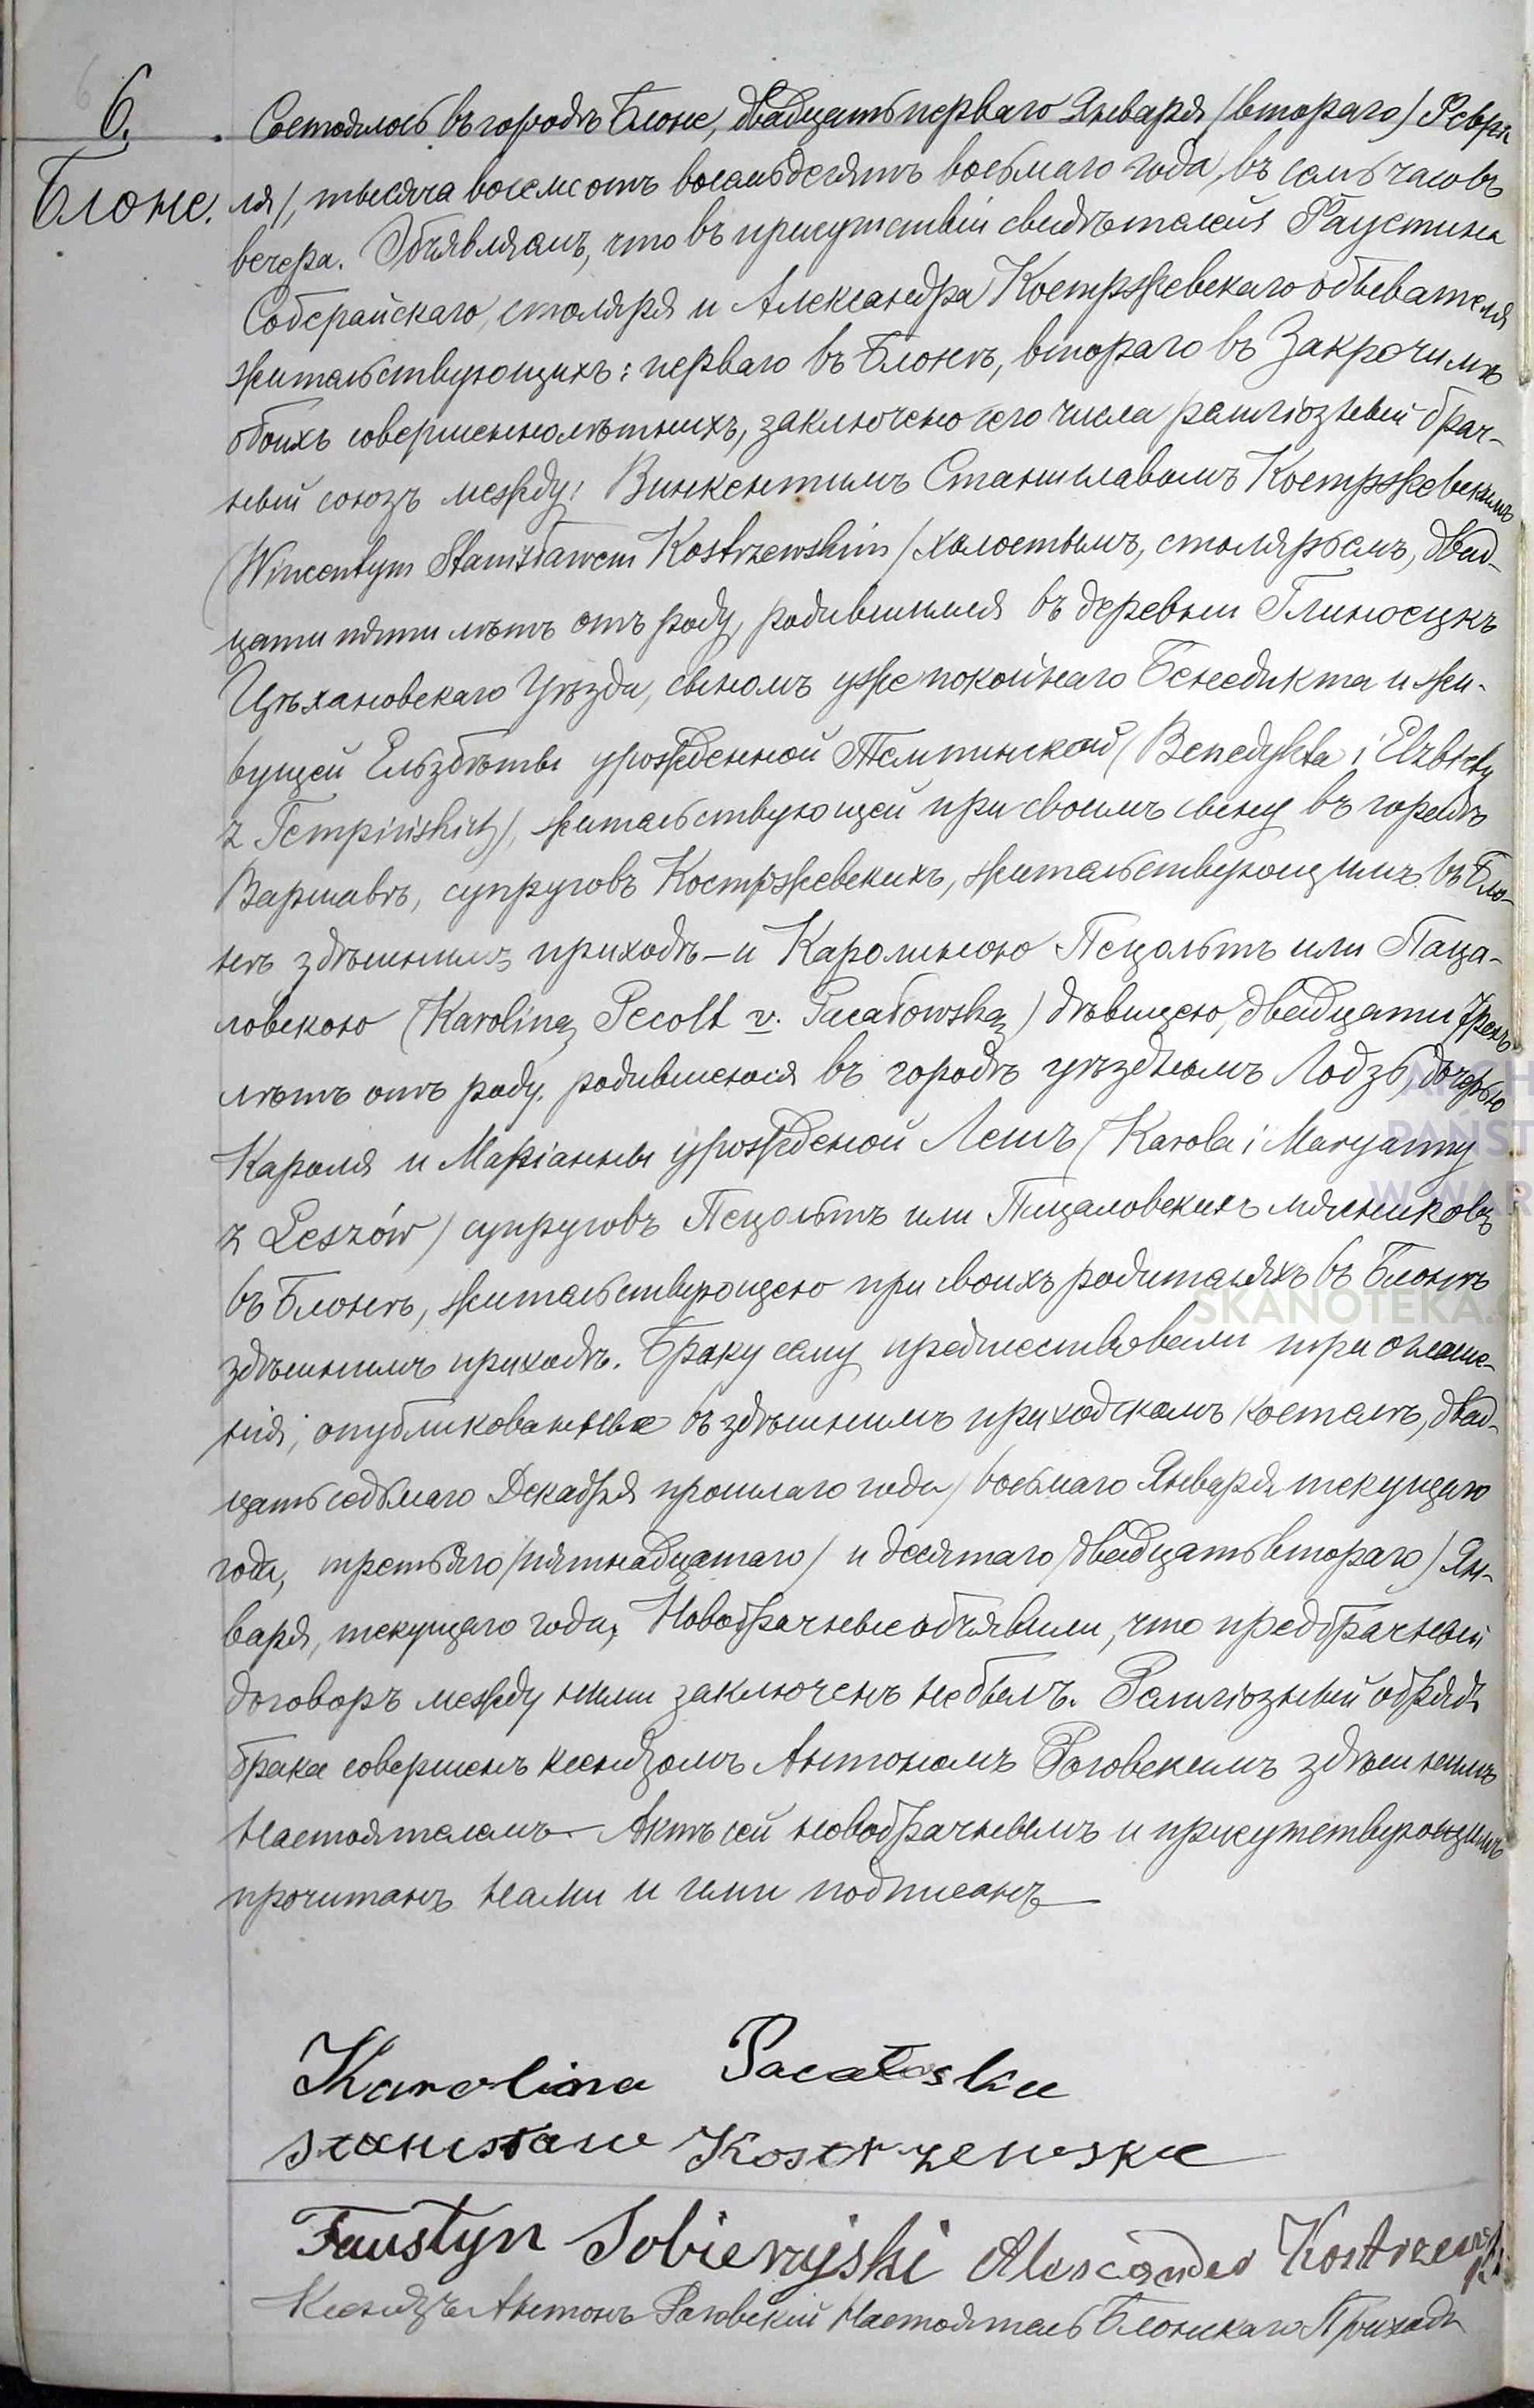 6.
Блоне.
Состоялось въ городѣ Блоне, двадцать перваго Января /втораго/ Февра
ля/, тысяча восемсотъ восемьдесятъ восьмаго года, въ семь часовъ
вечера. Объявляемъ, что въ присутствіи свидѣтелей Фаустина
Соберайскаго, столяря и Александра Костржевскаго обывателя
жительствующихъ: перваго въ Блонѣ, втораго въ Закрочимѣ
обоихъ совершеннолѣтнихъ, заключено сего числа религіозный брач-
ный союзъ между: Винкентимъ Станиславомъ Костржевскимъ
(Wincentym Stanisławem Kostrzewskim / холостымъ, столяремъ, двад-
цати пяти лѣтъ отъ роду, родившимся въ деревни Глиносцкъ
Цѣхановскаго Уѣзда, сыномъ уже покойнаго Бенедикта и жи-
вущей Ельзбѣты урожденной Темпинской (Benedykta i Elzbiety
z Tempińskich), жительствующей при своимъ сыну въ городѣ
Варшавѣ, супруговъ Костржевскихъ, жительствующимъ въ Бло-
нѣ здѣшнимъ приходѣ – и Каролиною Пецольтъ или Паца-
ловскою (Karoliną Pecolt v. Pacałowską) дѣвицею, двадцати трехъ
лѣтъ отъ роду, родившеюся въ городѣ уѣздномъ Лодзь, дочерью
Кароля и Маріанны урожденой Лешъ (Karola i Maryanny
z Leszów) супруговъ Пецольтъ или Пацаловскихъ мясниковъ
въ Блонѣ, жительствующею при своихъ родителяхъ въ Блонѣ
здѣшнимъ приходѣ. Браку сему предшествовали три оглаше-
нія, опубликованные въ здѣшнимъ приходскомъ костелѣ, двад-
цать седьмаго Декабря прошлаго года / восьмаго Января текущаго
года, третьяго /пятнадцатаго/ и десятаго /двадцать втораго/ Ян-
варя, текущаго года, Новобрачные объявили, что предбрачный
договоръ между ними заключенъ небылъ. Религіозный обрядъ
брака совершенъ ксендзомъ Антономъ Роговскимъ здѣшнимъ
Настоятелемъ – Актъ сей новобрачнымъ и присутствующимъ
прочитанъ нами и ими подписанъ
Karolina Pacałoska
Stanisław Kostrzewski
Faustyn Sobierajski Alexander Kostrzewski
Ксендзъ Антонъ Роговскій Настоятель Блонскаго Прихода
ARCH
PAŃST
W WAR
SKANOTEKA.G